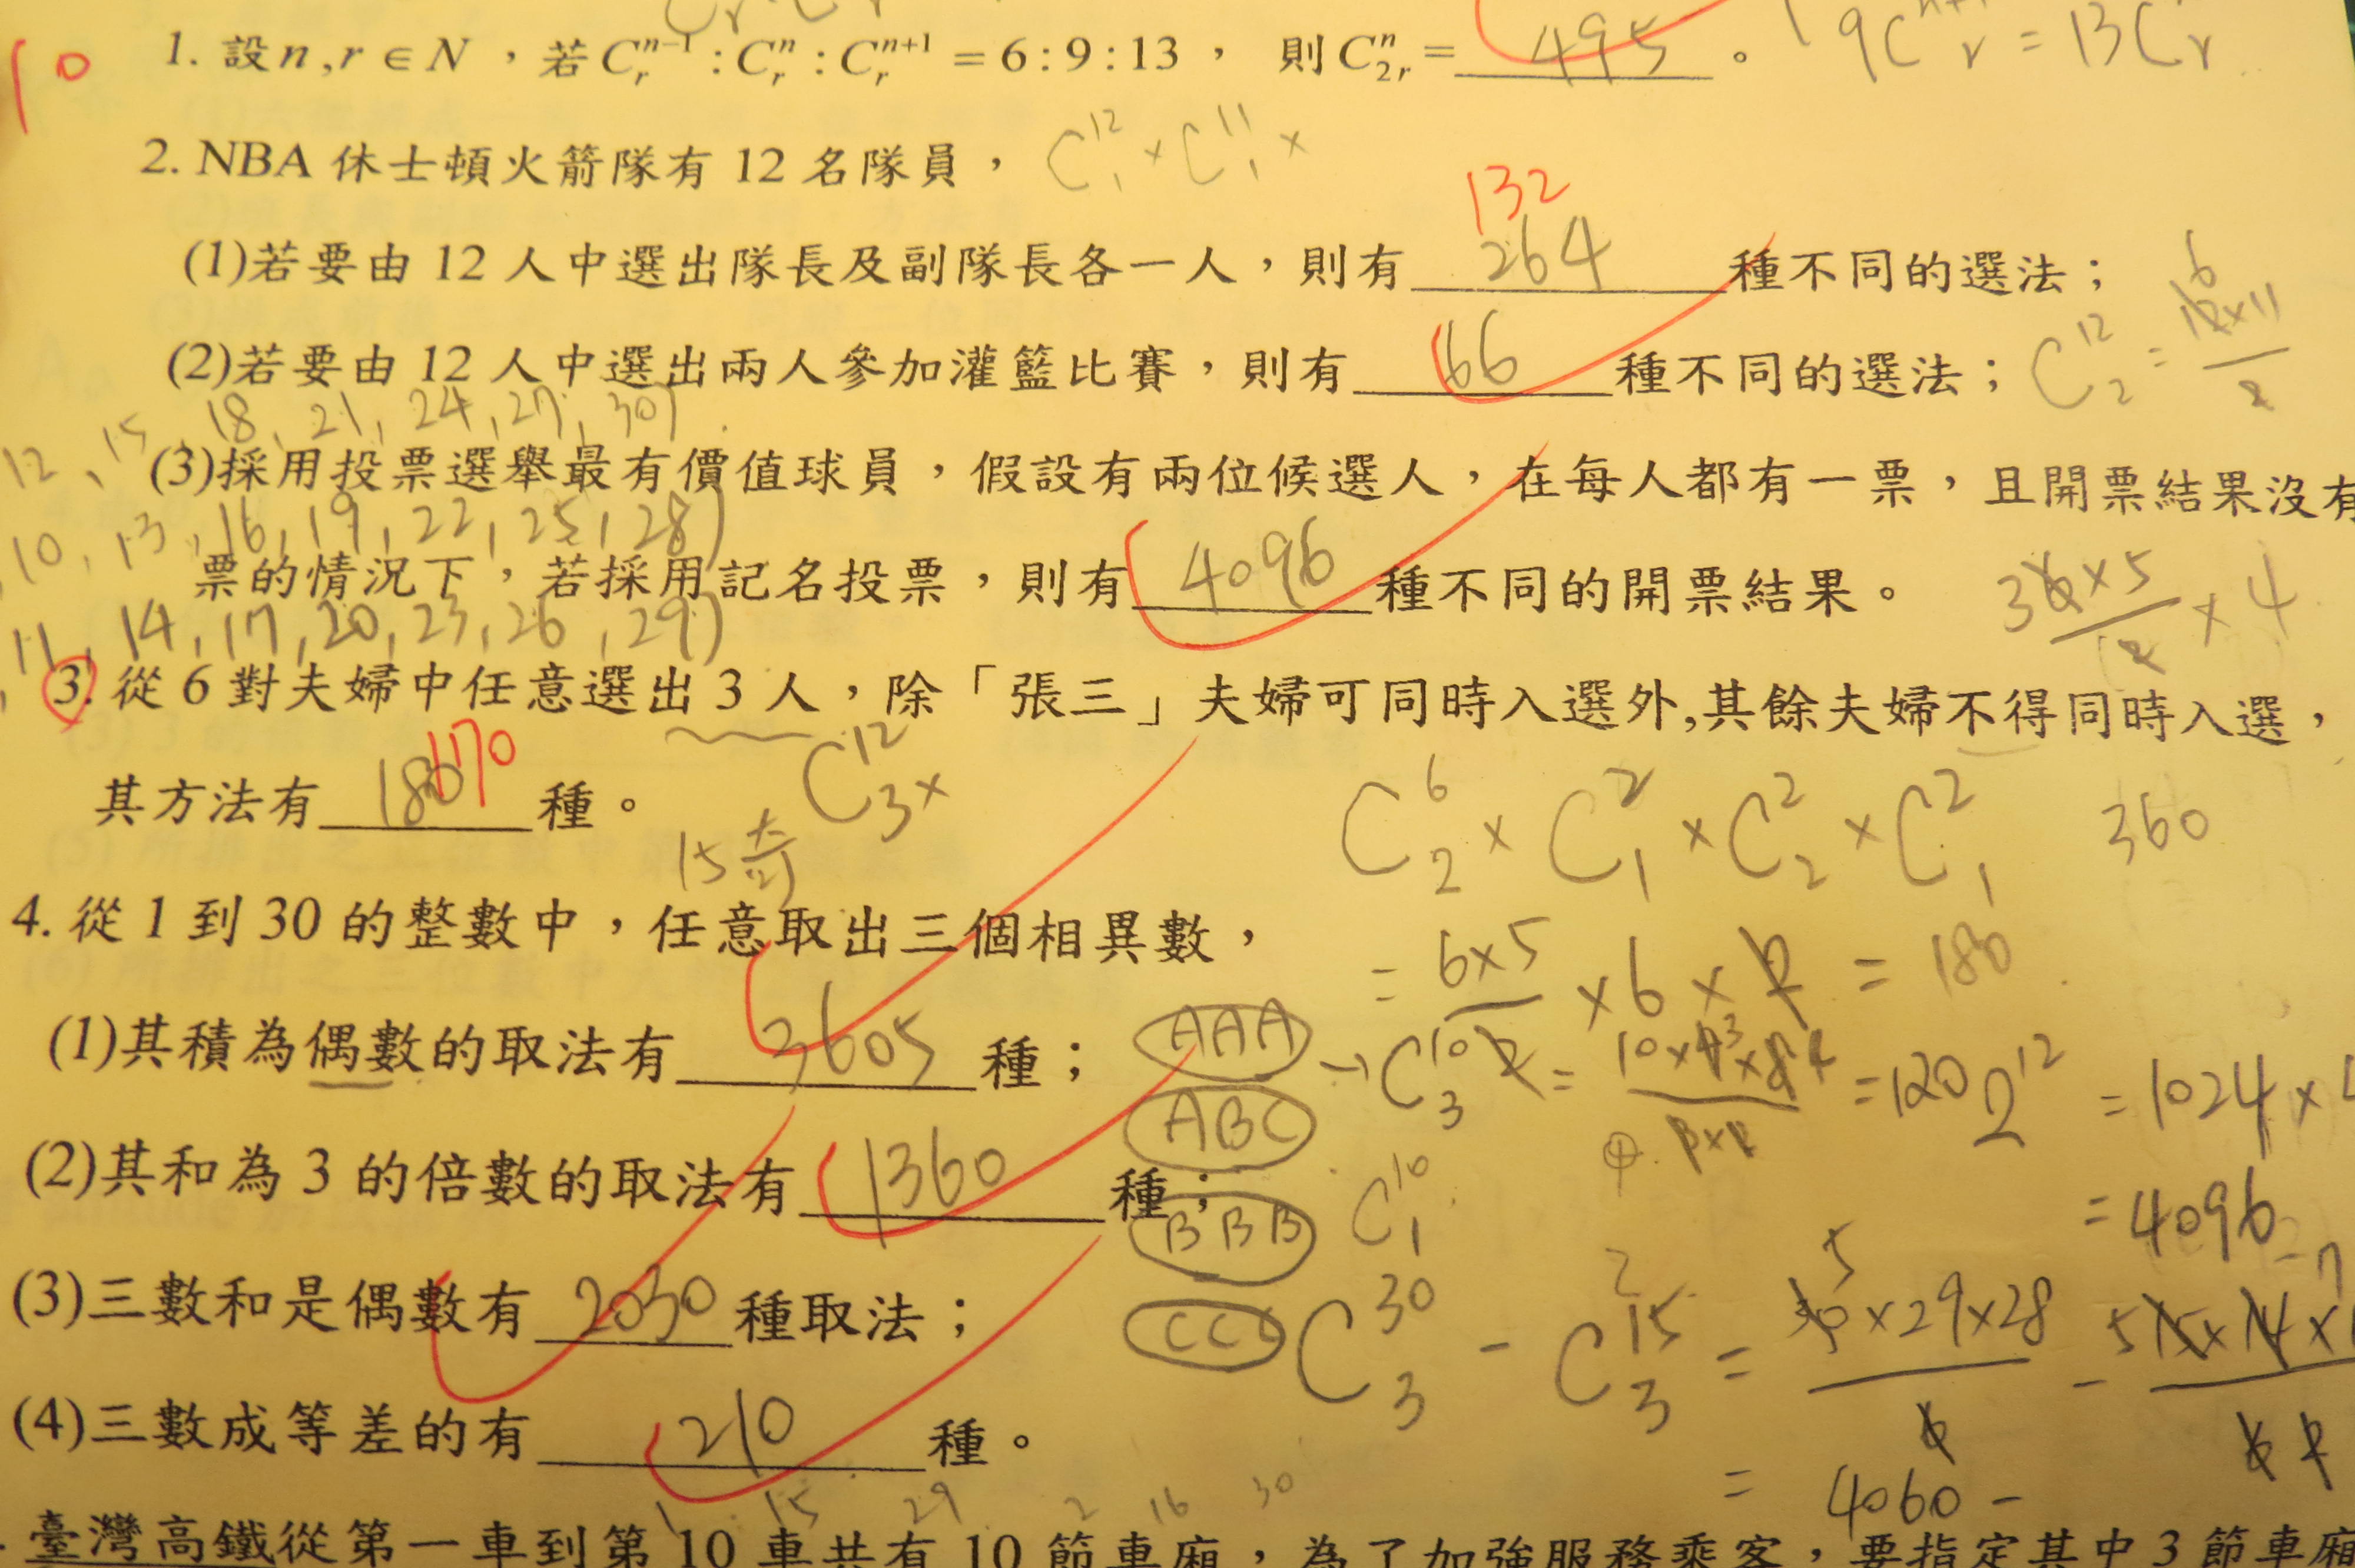 10
1. 設n,r∈N，若C_r^{n-1}:C_r^n:C_r^{n+1}=6:9:13，則C_{2r}^n=495。
2. NBA 休士頓火箭隊有 12 名隊員，C_1^{12}×C_1^{11}×
132
(1)若要由 12 人中選出隊長及副隊長各一人，則有264種不同的選法；
(2)若要由 12 人中選出兩人參加灌籃比賽，則有66種不同的選法；C_2^{12}=
12, 15, 18, 21, 24, 27, 30)
(3)採用投票選舉最有價值球員，假設有兩位候選人，在每人都有一票，且開票結果沒有
10, 13, 16, 19, 22, 25, 28)
票的情況下，若採用記名投票，則有4096種不同的開票結果。
11, 14, 17, 20, 23, 26, 29)
3. 從 6 對夫婦中任意選出 3 人，除「張三」夫婦可同時入選外,其餘夫婦不得同時入選，
其方法有180 170種。C_3^{12}×
C_2^6×C_1^2×C_2^2×C_1^2 360
15奇
4. 從 1 到 30 的整數中，任意取出三個相異數，
=6×5
×6× = 180
(1)其積為偶數的取法有3605種；
AAA
ABC
=1024×
(2)其和為 3 的倍數的取法有1360種；
BBB C_1^{10}
=4096
(3)三數和是偶數有2030種取法；
CCC C_3^{30} - C_3^{15} =
×29×28
(4)三數成等差的有210種。
= 4060 -
1 15 29 2 16 30
臺灣高鐵從第一車到第 10 車共有 10 節車廂，為了加強服務乘客，要指定其中 3 節車廂